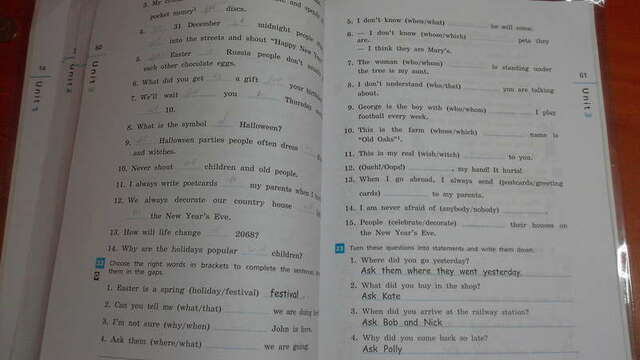 60
Unit 1
Unit 2
Unit 3
pocket money discs.
4. 31 December midnight people
into the streets and shout "Happy New
5. Easter Russia people don't
each other chocolate eggs.
6. What did you get a gift your
7. We'll wait you Thursday
10.
8. What is the symbol Halloween?
9. Halloween parties people often dress
and witches.
10. Never shout children and old people.
11. I always write postcards my parents when I
12. We always decorate our country house
the New Year's Eve.
13. How will life change 2068?
14. Why are the holidays popular children?
22 Choose the right words in brackets to complete the sentences
them in the gaps.
1. Easter is a spring (holiday/festival) festival.
2. Can you tell me (what/that) we are doing
3. I'm not sure (why/when) John is here.
4. Ask them (where/what) we are going.
5. I don't know (when/what) he will come.
6. — I don't know (whose/which) pets they
are.
— I think they are Mary's.
7. The woman (who/whose) is standing under
the tree is my aunt.
8. I don't understand (who/that) you are talking
about.
9. George is the boy with (who/whom) I play
football every week.
10. This is the farm (whose/which) name is
"Old Oaks".
11. This is my real (wish/witch) to you.
12. (Ouch!/Oops!) , my hand! It hurts!
13. When I go abroad, I always send (postcards/greeting
cards) to my parents.
14. I am never afraid of (anybody/nobody)
15. People (celebrate/decorate) their houses on
the New Year's Eve.
23 Turn these questions into statements and write them down.
1. Where did you go yesterday?
Ask them where they went yesterday.
2. What did you buy in the shop?
Ask Kate
3. When did you arrive at the railway station?
Ask Bob and Nick
4. Why did you come back so late?
Ask Polly
61
Unit 3